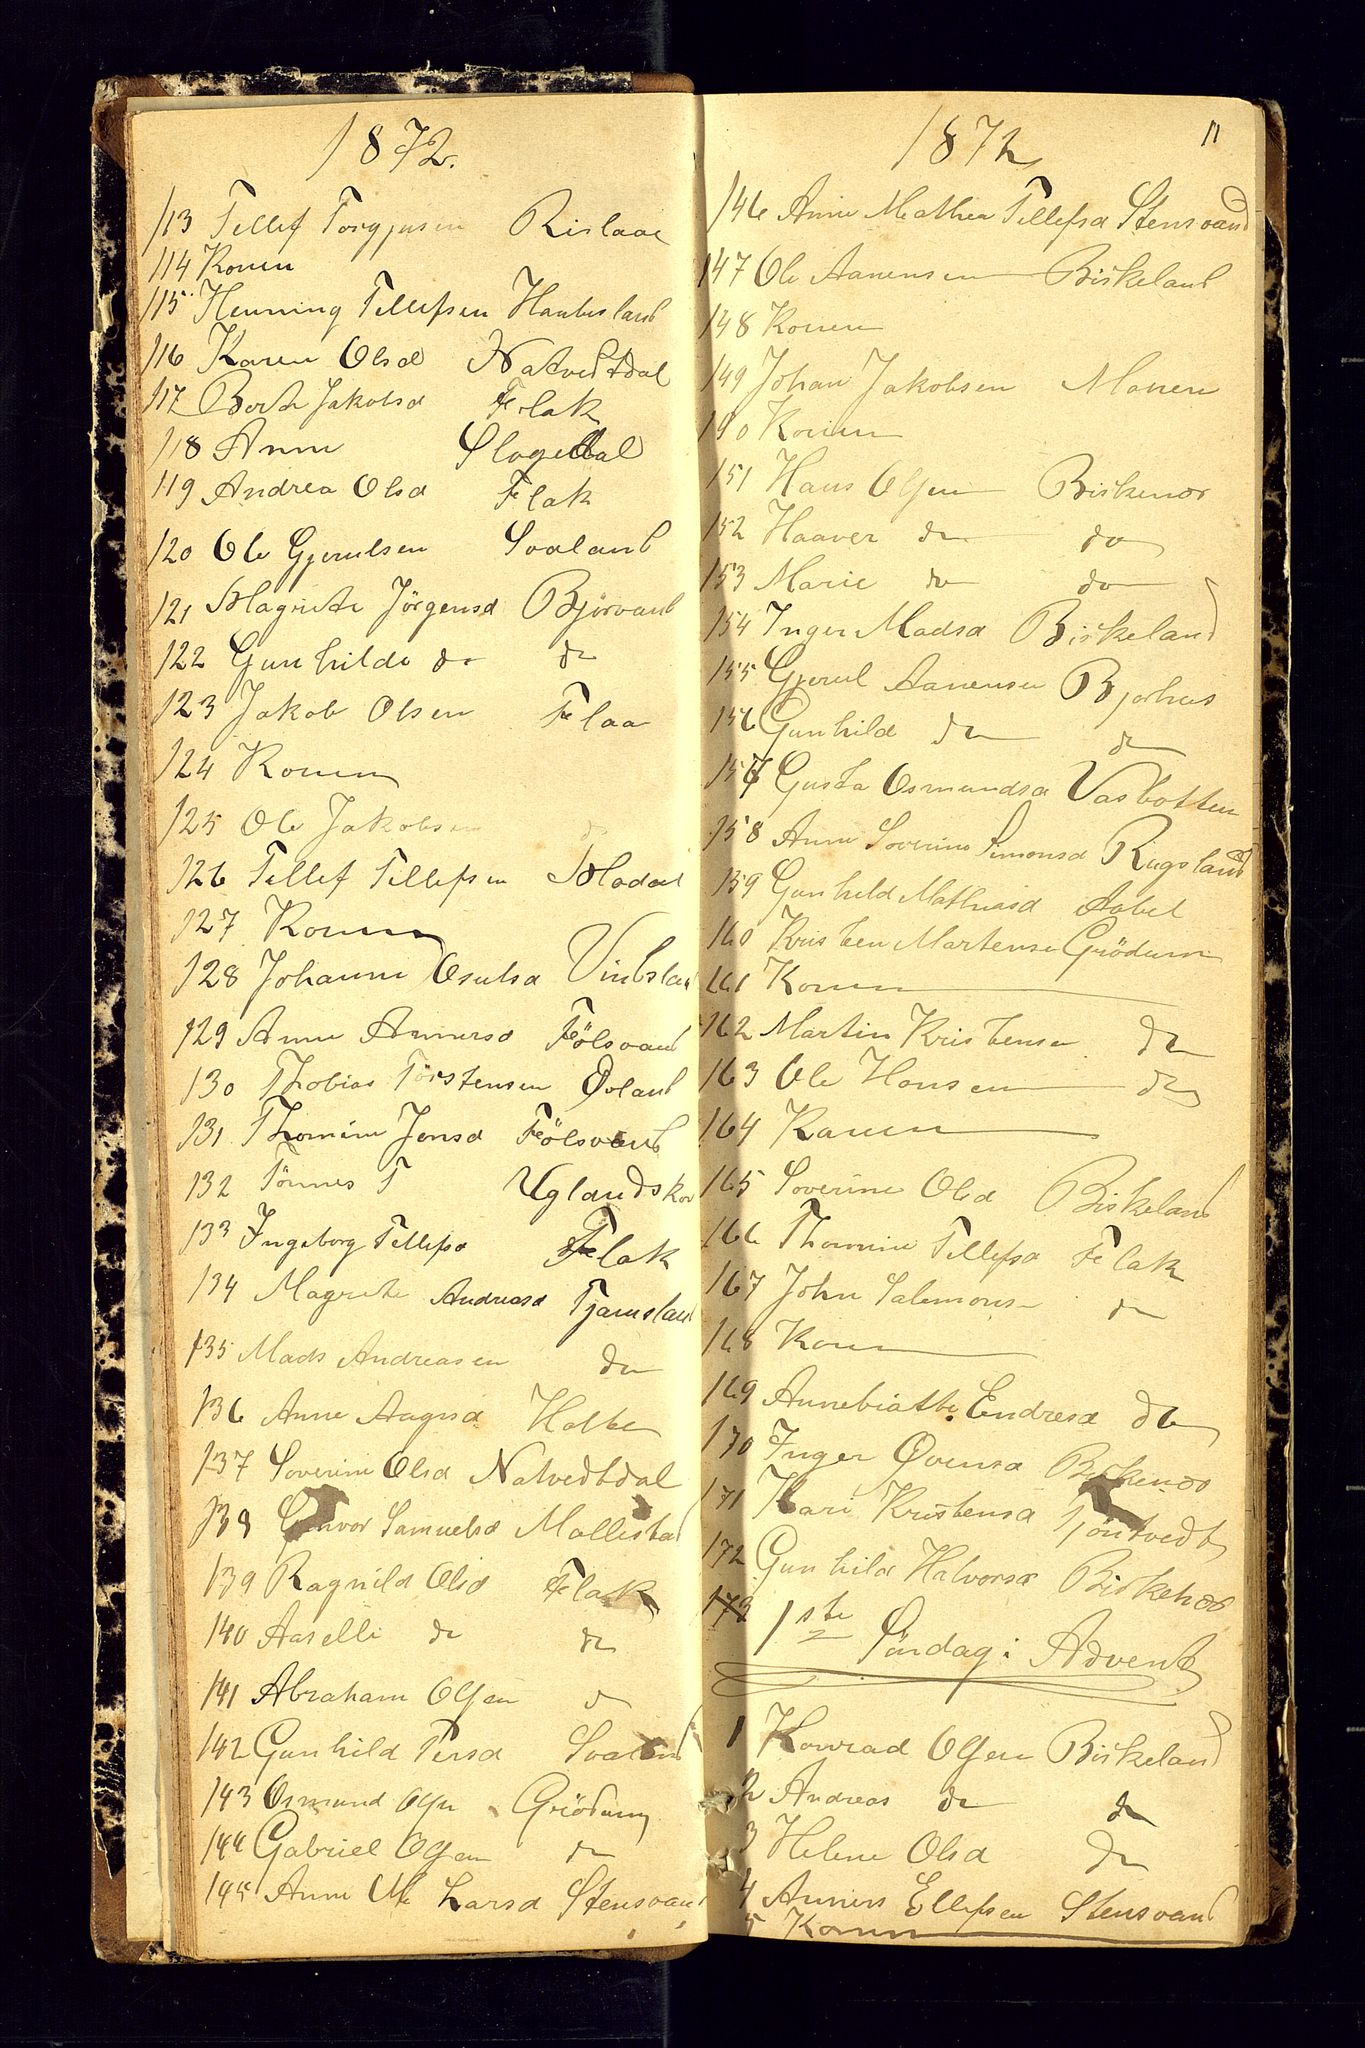 1872.
113 Tellef Torgjusen Rislaae
114 Konen
115 Henning Tellefsen Haubesland
116 Karen Olsd Natvedtdal
117 Berte Jakobsd Flak
118 Anne Slogedal
119 Andrea Olsd Flak
120 Ole Gjerulsen Svaland
121 Magrete Jörgensd Björvand
122 Gunhilde do do
123 Jakob Olsen Flaa
124 Konen
125 Ole Jakobsen do
126 Tellef Tellefsen
127 Konen
128 Johanne Osulsd Vindsland
129 Anne Annersd Fölsvand
130 Thobias Torstensen Övland
131 Thomine Jensd Fölsvand
132 Tönnes T Uglandskov
133 Ingeborg Tellefsd Flak
134 Magrete Andreasd Tjamsland
135 Mads Andreasen do
136 Anne Aagesd Holte
137 Soverine Olsd Natvedtdal
138 Gunvor Samuelsd Mollestad
139 Ragnild Olsd Flak
140 Aaselle do do
141 Abraham Olsen do
142 Gunhild Persd Svaland
143 Osmund Olsen Grödum
144 Gabriel Olsen do
145 Anne Ma Larsd Stensvand
1872 11
146 Anne Mathea Tellefsd Stensvand
147 Ole Aanensen Birkeland
148 Konen
149 Johan Jakobsen Monen
150 Konen
151 Hans Olsen Birkenæs
152 Haaver do do
153 Marie do do
154 Inger Madsd Birkeland
155 Gjerul Aanensen Bjorhus
156 Gunhild do do
157 Gusta Osmundsd Vasbotten
158 Anne Soverine Simonsd Rugsland
159 Gunhild Mathiasd Aabel
160 Kristen Martensen Grödum
161 Konen
162 Martin Kristensen do
163 Ole Hansen do
164 Karen
165 Soverine Olsd Birkeland
166 Thomine Tellefsd Flak
167 John Salemons- do
168 Konen
169 Annebiatte Endresd do
170 Inger Övensd Birkenæs
171 Kari Kristensd Tjöntvedt
172 Gunhild Halvorsd Birkenæs
173 1ste Söndag i Advent
1 Konrad Olsen Birkeland
2 Andreas do do
3 Helene Olsd do
4 Anners Ellefsen Stensvand
5 Konen